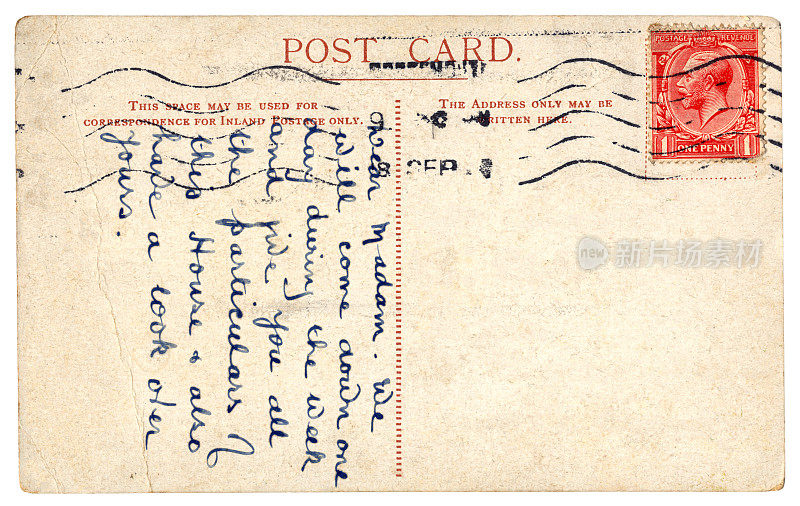 POST CARD.
THIS SPACE MAY BE USED FOR
CORRESPONDENCE FOR INLAND POSTAGE ONLY.
THE ADDRESS ONLY MAY BE
WRITTEN HERE.
POSTAGE REVENUE
1 ONE PENNY 1
8 SEP
Dear Madam. We
will come down one
day during the week
and give you all
the particulars of
this House & also
have a look over
yours.
new 新片场素材